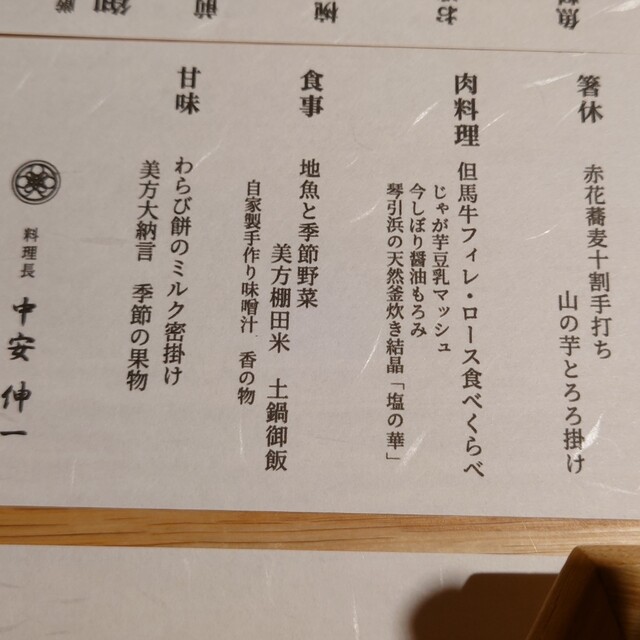 箸休
赤花蕎麦十割手打ち
山の芋とろろ掛け
肉料理
但馬牛フィレ・ロース食べくらべ
じゃが芋豆乳マッシュ
今しぼり醤油もろみ
琴引浜の天然釜炊き結晶「塩の華」
食事
地魚と季節野菜
美方棚田米　土鍋御飯
自家製手作り味噌汁　香の物
甘味
わらび餅のミルク密掛け
美方大納言　季節の果物
料理長　中安伸一
魚
お
椀
前